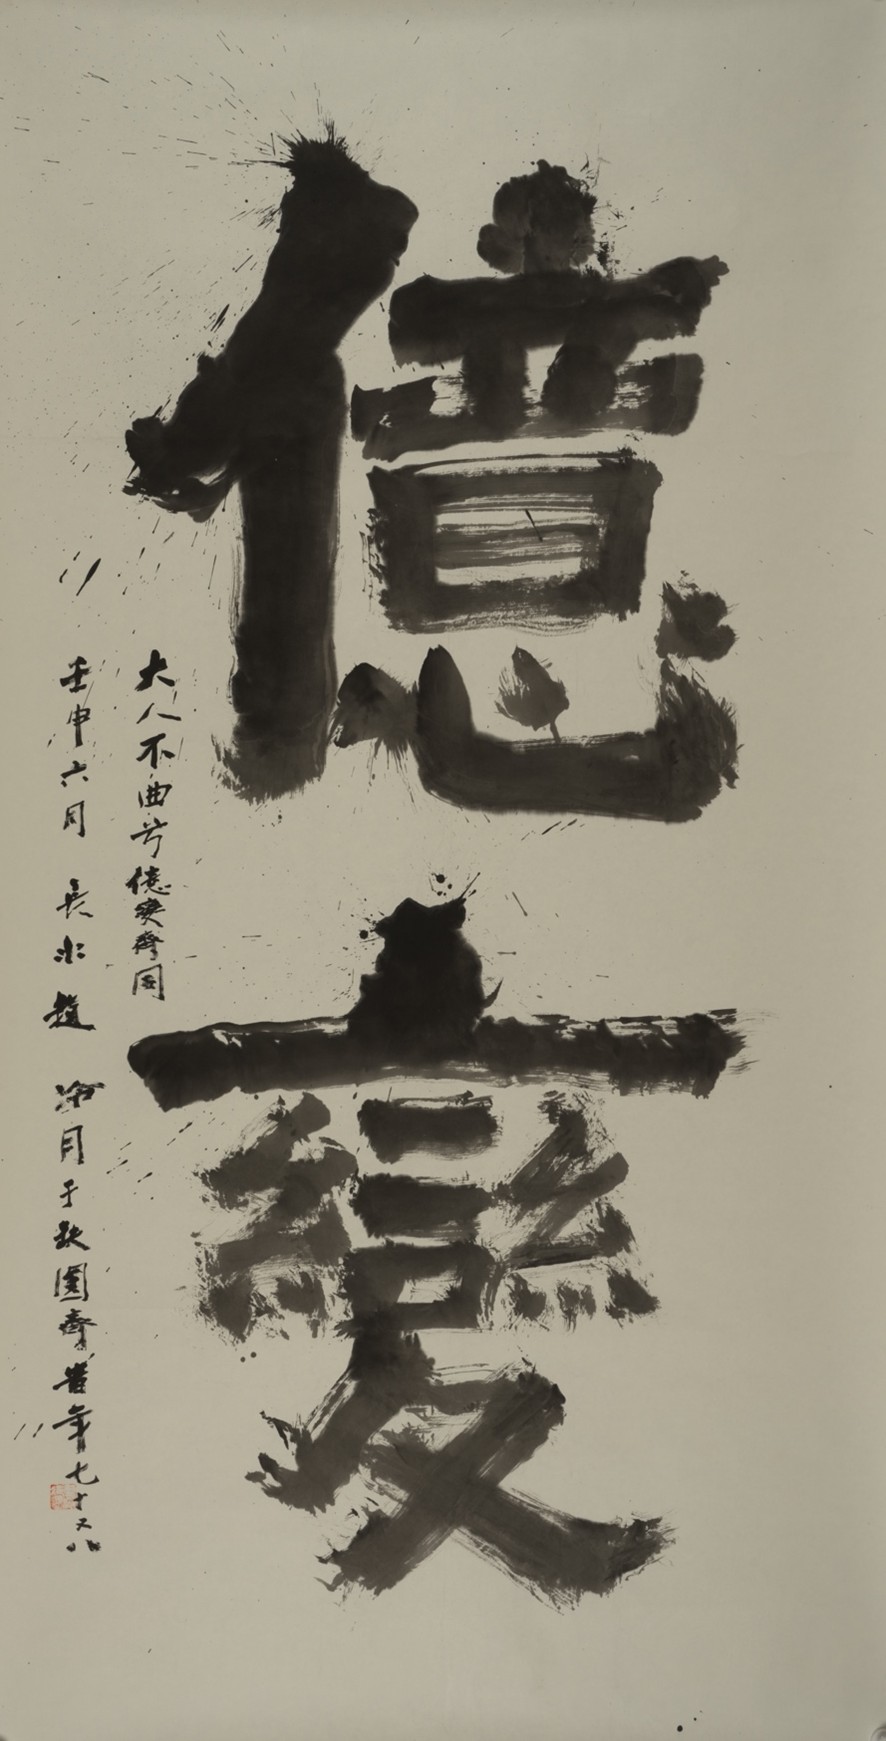 億變
大人不曲兮億變齊同
壬申六月 長水趙冷月于缺圓齋 當年七十又八